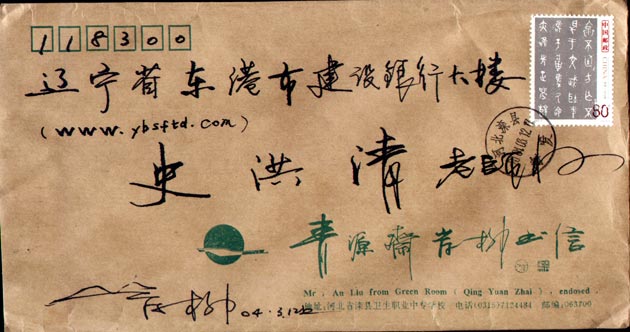 118300
辽宁省东港市建设银行大楼
(www.ybsftd.com)
史洪清 老师
中国邮政
CHINA
80
河北滦县
青源斋岸柳书信
Mr. An Liu from Green Room (Qing Yuan Zhai), endosed.
地址:河北省滦县卫生职业中专学校 电话(0315)7124484 邮编:063700
岸柳 04.3.12